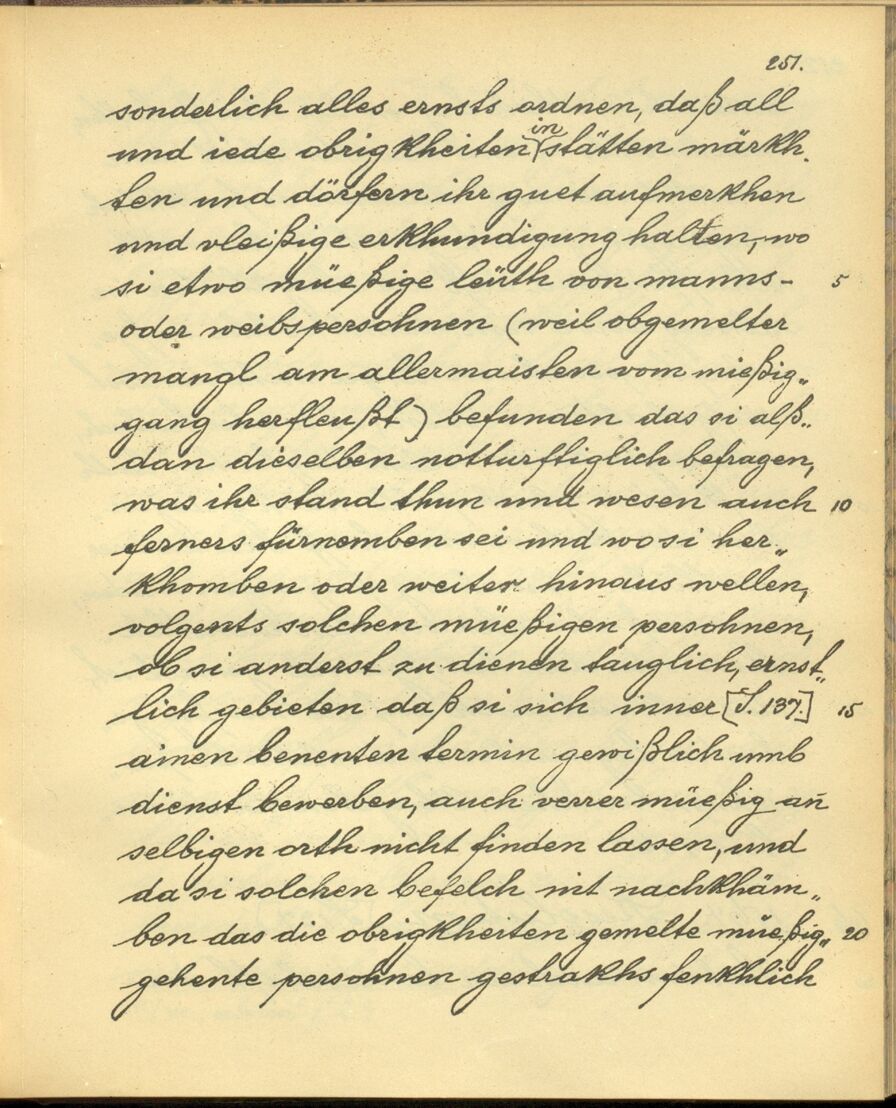 251.
sonderlich alles ernsts ordnen, daß all
und iede obrigkheiten in stätten märkh-
ten und dörfern ihr guet aufmerkhen
und vleißige erkhundigung halten, wo
si etwo müeßige leüth von manns- 5
oder weibspersohnen (weil obgemelter
mangl am allermaisten vom mießig„
gang herfleußt) befunden das si alß„
dan dieselben notturftiglich befragen,
was ihr stand thun und wesen auch 10
ferners fürnemben sei und wo si her„
khomben oder weiter hinaus wellen,
volgents solchen müeßigen persohnen,
ob si anderst zu dienen tauglich, ernst„
lich gebieten daß si sich inner [S. 137.] 15
ainen benenten termin gewißlich umb
dienst bewerben, auch verrer müeßig an
selbigen orth nicht finden lassen, und
da si solchen befelch nit nachkhäm„
ben das die obrigkheiten gemelte müeßig„ 20
gehente persohnen gestrakhs fenkhlich